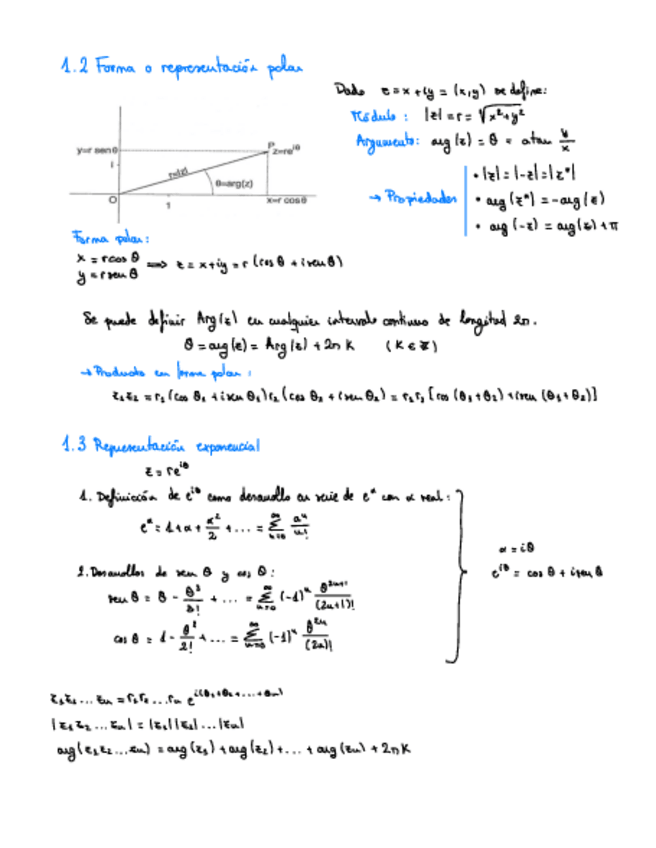 1.2 Forma o representación polar
Dado z = x + iy = (x,y) se define:
Módulo: |z| = r = √x²+y²
Argumento: arg(z) = θ = atan y/x
→ Propiedades
• |z| = |-z| = |z*|
• arg(z*) = -arg(z)
• arg(-z) = arg(z) + π
y=r senθ
i
r=|z|
P
z=re^iθ
θ=arg(z)
O
1
x=r cosθ
Forma polar:
x = r cos θ
y = r sen θ ⟹ z = x + iy = r (cos θ + i sen θ)
Se puede definir Arg(z) en cualquier intervalo continuo de longitud 2π.
θ = arg(z) = Arg(z) + 2πK (K ∈ Z)
→ Producto en forma polar:
z₁z₂ = r₁(cos θ₁ + i sen θ₁) r₂(cos θ₂ + i sen θ₂) = r₁r₂ [cos (θ₁+θ₂) + i sen (θ₁+θ₂)]
1.3 Representación exponencial
z = re^iθ
1. Definición de e^iθ como desarrollo en serie de e^α con α real:
e^α = 1 + α + α²/2 + ... = Σ_{n=0}^∞ α^n/n!
2. Desarrollos de sen θ y cos θ:
sen θ = θ - θ³/3! + ... = Σ_{n=0}^∞ (-1)^n θ^{2n+1}/(2n+1)!
cos θ = 1 - θ²/2! + ... = Σ_{n=0}^∞ (-1)^n θ^{2n}/(2n)!
α = iθ
e^iθ = cos θ + i sen θ
z₁z₂...zn = r₁r₂...rn e^{i(θ₁+θ₂+...+θn)}
|z₁z₂...zn| = |z₁||z₂|...|zn|
arg(z₁z₂...zn) = arg(z₁) + arg(z₂) + ... + arg(zn) + 2πK